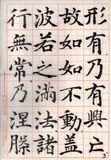 形有乃有
故如如不動蓋
波若之滿諸
行無常乃涅槃